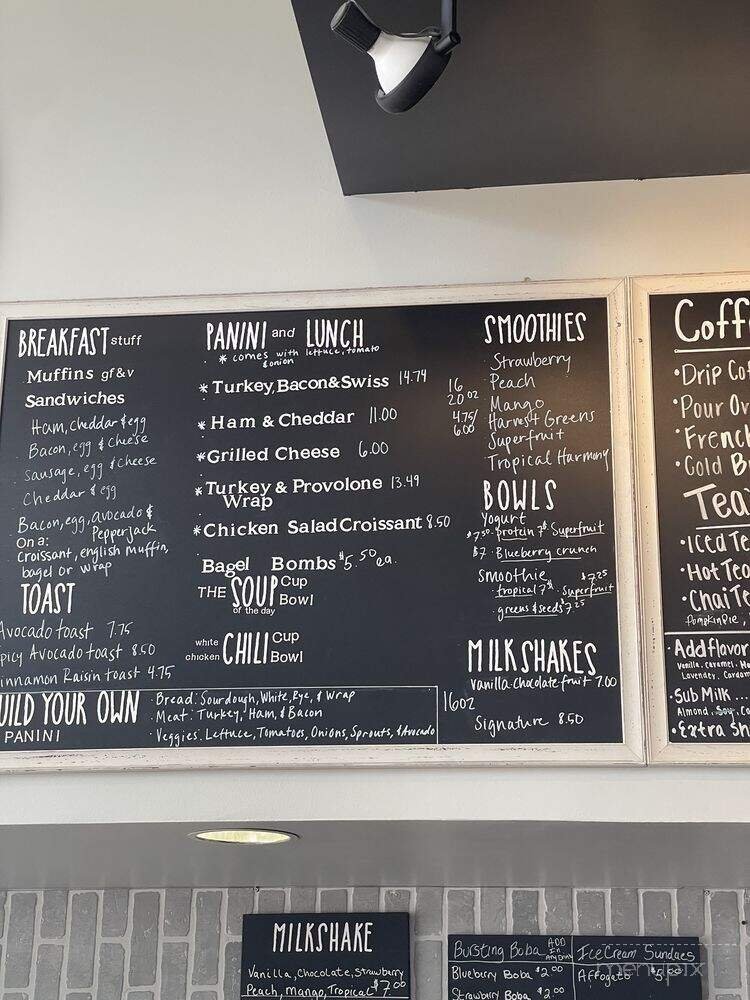 BREAKFAST stuff
Muffins gf&v
Sandwiches
Ham, Cheddar & egg
Bacon, egg & cheese
Sausage, egg & cheese
Cheddar & egg
Bacon, egg, avocado &
Pepperjack
On a:
Croissant, english Muffin,
bagel or wrap
TOAST
Avocado toast 7.75
picy Avocado toast 8.50
innamon Raisin toast 4.75
UILD YOUR OWN
PANINI
• Bread: Sourdough, White, Rye, & Wrap
• Meat: Turkey, Ham, & Bacon
• Veggies: Lettuce, Tomatoes, Onions, Sprouts, & Avocado
PANINI and LUNCH
* comes with lettuce, tomato
& onion
* Turkey, Bacon & Swiss 14.74
* Ham & Cheddar 11.00
* Grilled Cheese 6.00
* Turkey & Provolone 13.49
Wrap
* Chicken Salad Croissant 8.50
Bagel Bombs $5.50 ea.
THE SOUP Cup
Bowl
of the day
white chicken CHILI Cup
Bowl
SMOOTHIES
Strawberry
16 Peach
20 oz Mango
4.75/ Harvest Greens
6.00 Superfruit
Tropical Harmony
BOWLS
Yogurt
$7.50 • Protein 7$ • Superfruit
$7 • Blueberry crunch
Smoothie $7.25
• tropical 7$ • Superfruit
• greens & seeds $7.25
MILKSHAKES
Vanilla-chocolate fruit 7.00
16oz
Signature 8.50
Coff
• Drip Cof
• Pour Ov
• French
• Cold B
Tea
• Iced Te
• Hot Tea
• Chai Te
Pumpkin Pie,
• Add flavor
Vanilla, Caramel, Ho
Lavender, Cardam
• Sub Milk ...
Almond, Soy, Co
• Extra Sh
MILKSHAKE
Vanilla, Chocolate, Strawberry
Peach, Mango, Tropical $7.00
Bursting Boba ADD In Any Drink
Blueberry Boba $2.00
Strawberry Boba $2.00
Ice Cream Sundaes
Affogato $5.00
menupix